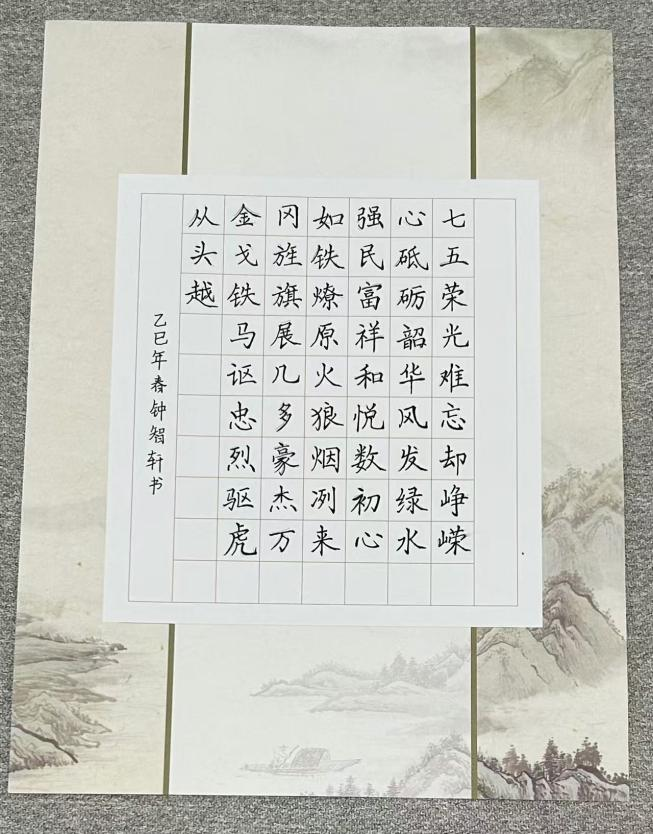 七五荣光难忘却峥嵘
心砥砺韶华风发绿水
强民富祥和悦数初心
如铁燎原火狼烟冽来
冈旌旗展几多豪杰万
金戈铁马讴忠烈驱虎
从头越
乙巳年春钟智轩书